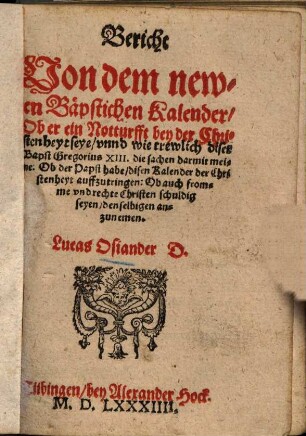 Bericht
Von dem new-
en Bäpstichen Kalender/
Ob er ein Notturfft bey der Chri-
stenheyt seye/ vnnd wie trewlich diser
Bapst Gregorius XIII. die sachen darmit mei-
ne: Ob der Papst habe/ disen Kalender der Chri-
stenheyt auffzutringen: Ob auch from-
me vnd rechte Christen schuldig
seyen/ denselbigen an-
zunemen.
Lucas Osiander D.
Tübingen/ bey Alexander Hock.
M. D. LXXXIIII.